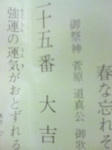 春な忘れ
御祭神 菅原道真公 御歌
二十五番 大吉
強運の運気がおとずれる